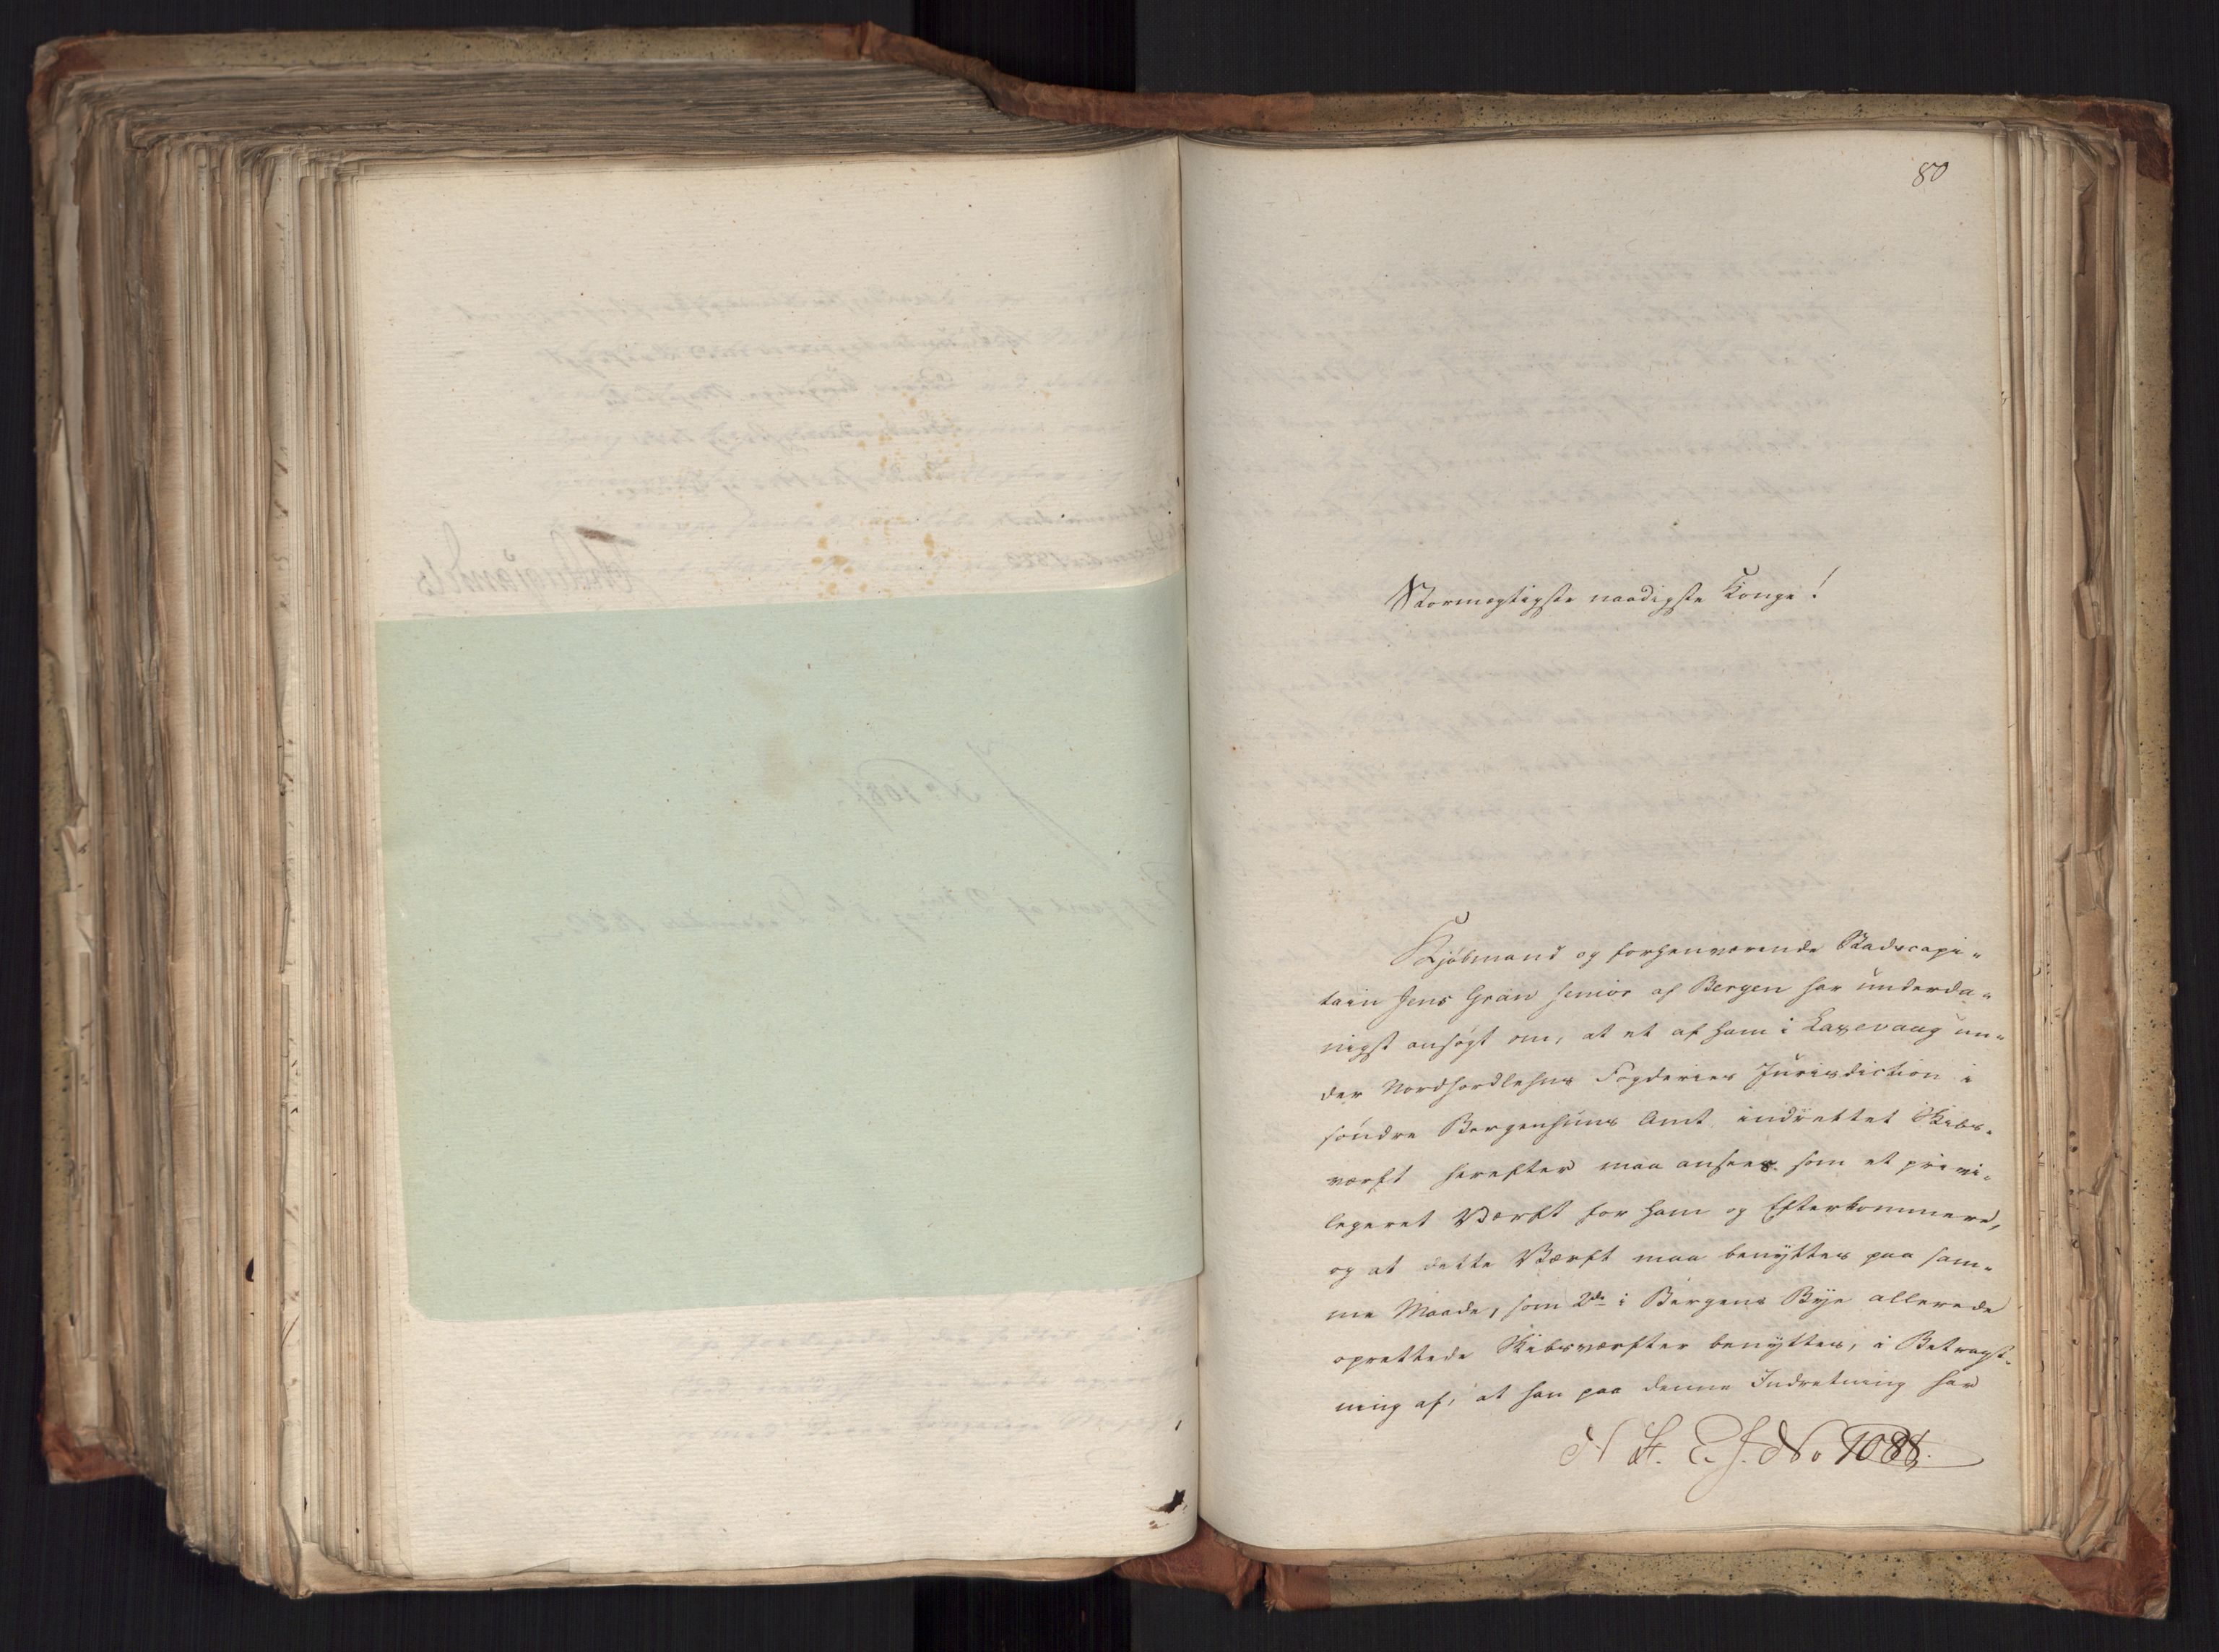 80
Stormægtigste naadigste Konge!
Kjöbmand og forhenværende Stadscapi-
tain Jens Gran senior af Bergen har underda-
nigst ansøgt om, at et af ham i Laxevaag un-
der Nordhordlehns Fogderies Jurisdiction i
söndre Bergenhuus Amt indrettet Skibs-
værft herefter maa ansees som et privi-
legeret Værft for ham og Efterkommere,
og at dette Værft maa benyttes paa sam-
me Maade, som 2de i Bergens Bye allerede
oprettede Skibsværfter benyttes, i Betragt-
ning af, at han paa denne Indretning har
N St. E. J. No 1088.